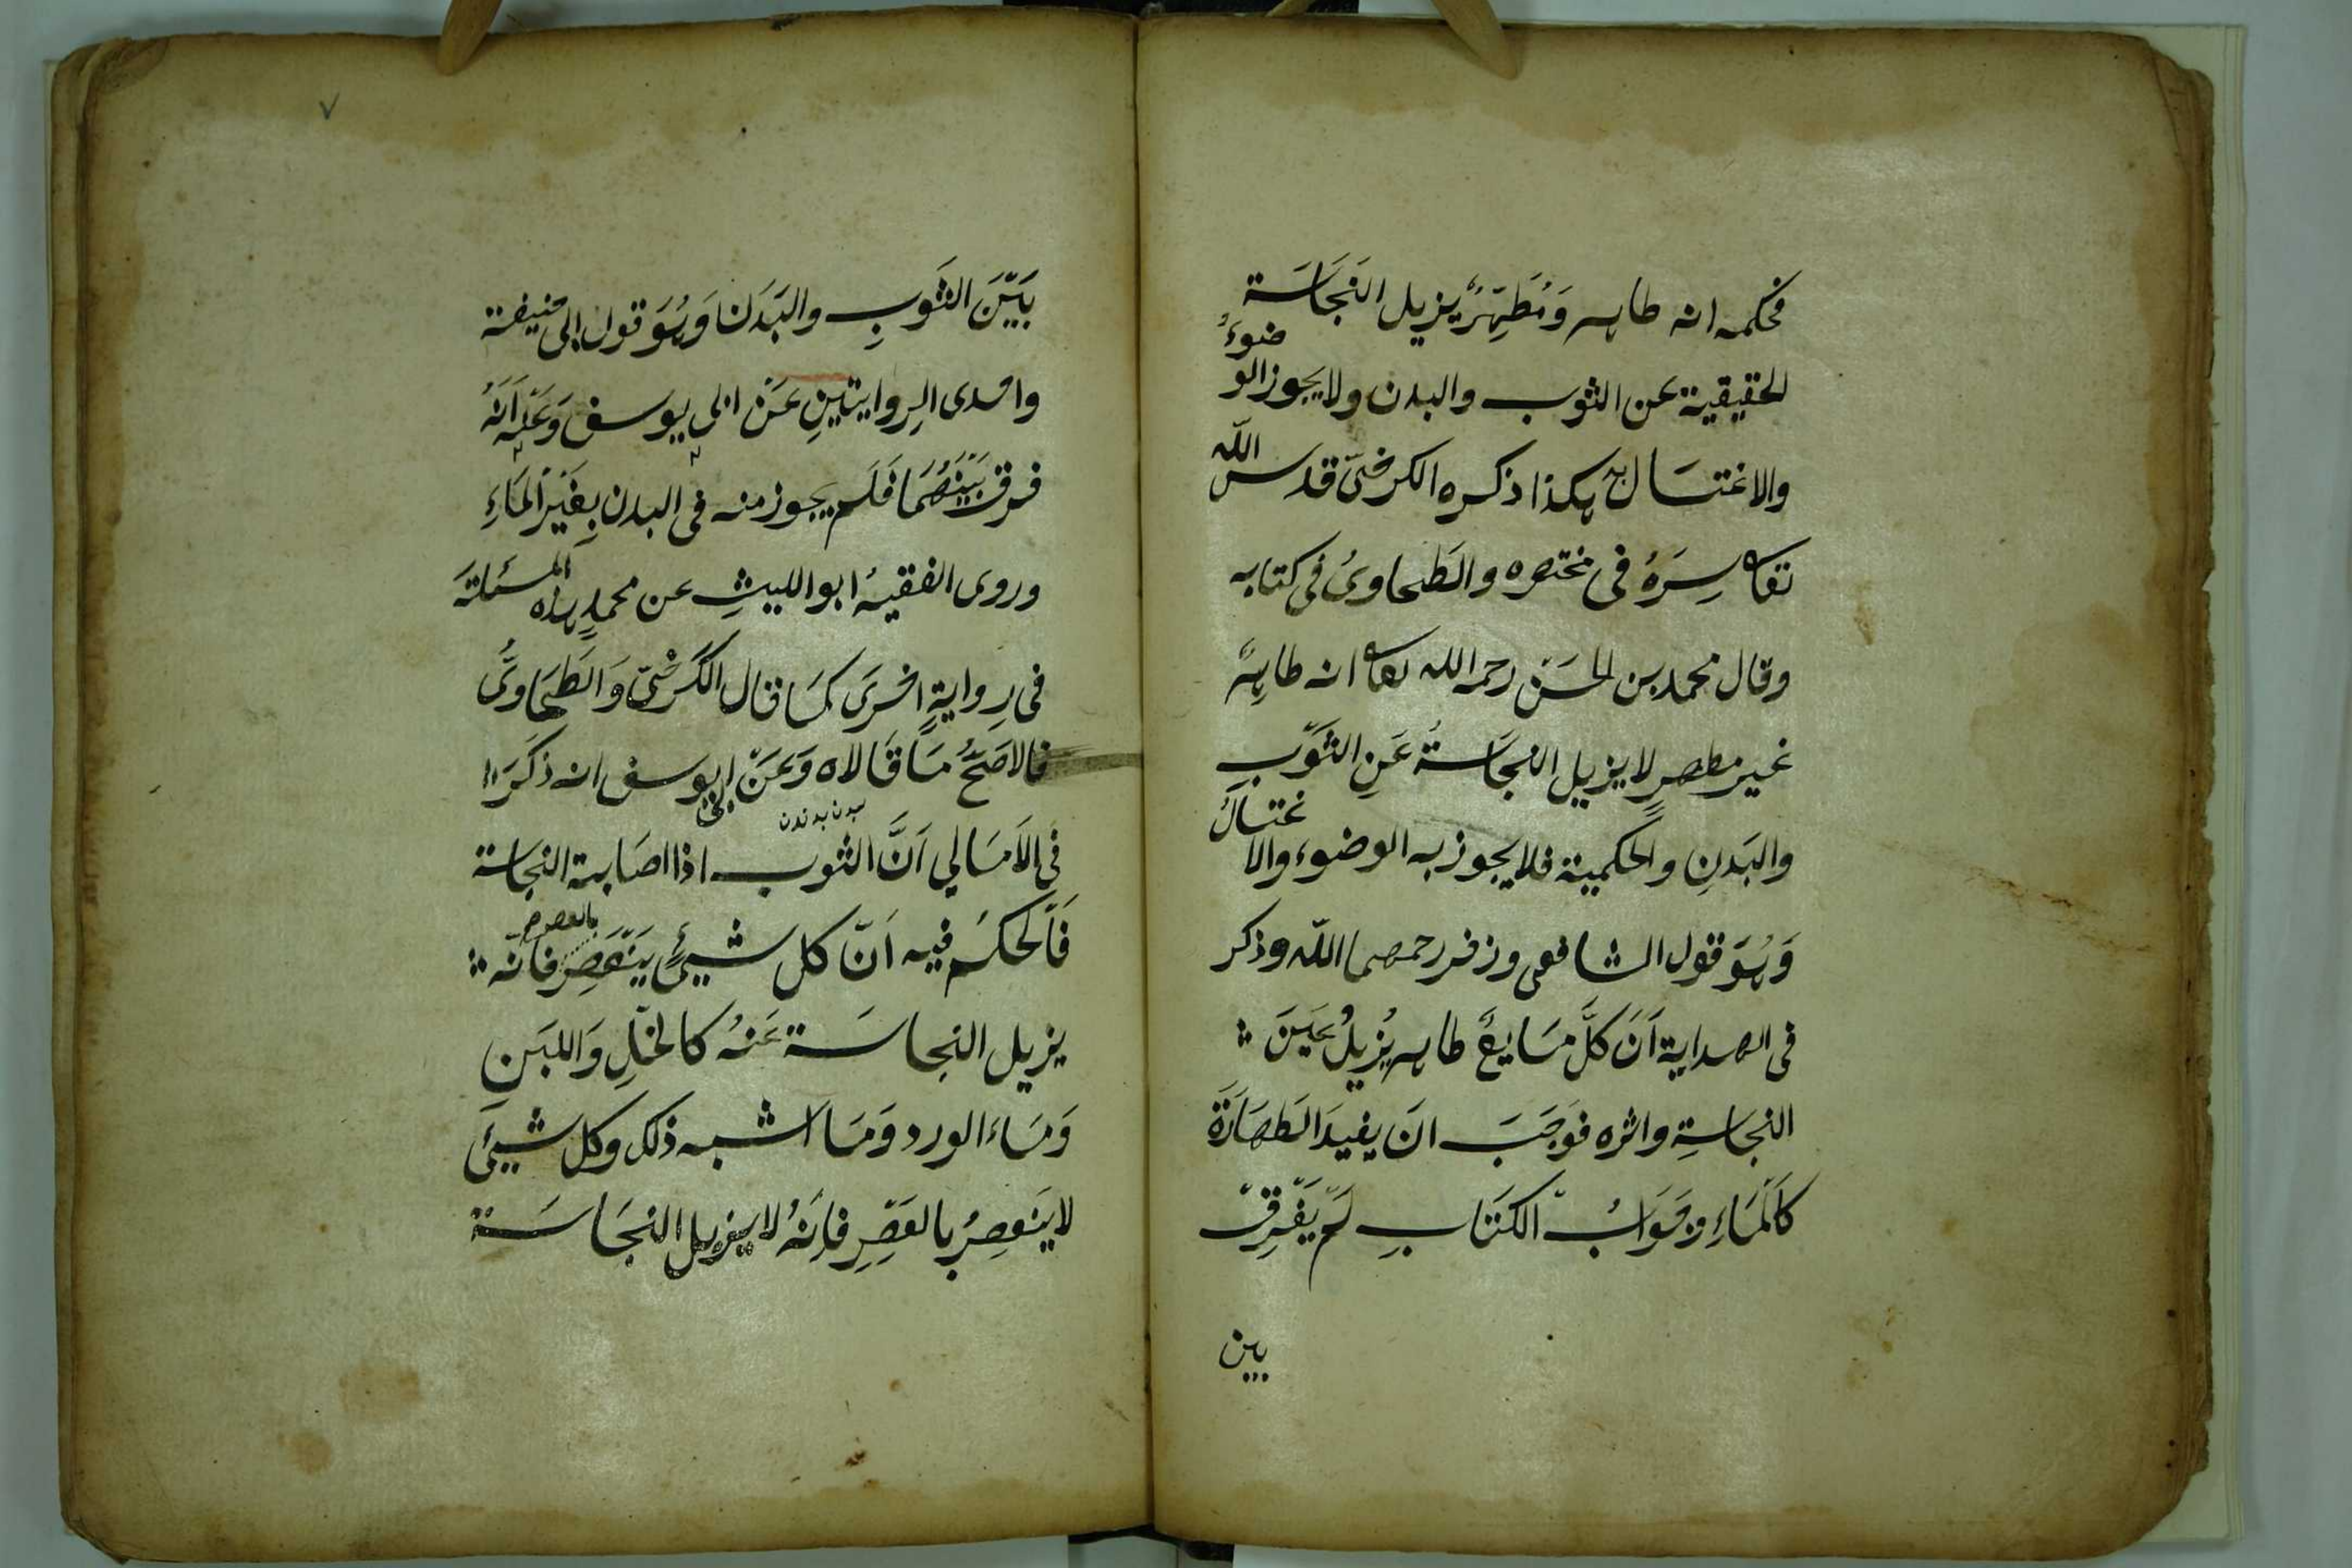 فحكمه انه طاهر وَمُطَهِّرٌ يزيل النَجَاسَة
الحقيقية عن الثوب والبدن ولا يجوز الوضوءُ
والاغتسال به هكذا ذكره الكرخىّ قدس الله
تعا سِرَهُ فى مختصره والطَحاوىُ فى كتابه
وقال محمد بن الحسَن رحمه الله تعا انه طاهرٌ
غير مطهرٍ لا يزيل النجَاسةُ عَنِ الثَوَبِ
والبَدنِ والحكمية فلا يجوز به الوضوء والاغتسالُ
وَهُوَ قول الشافعى وزفر رحمهما اللّه وذكر
فى الهداية اَنَ كلَّ مَايعٌ طاهر يُزيلُ عَيَنَ
النجاسةِ واثره فوَجَبَ انَ يفيدَ الطَهَارَةَ
كاَلمَاءِ وجَوَابُ الكتَابِ لَم يَفَرِق
بين
٧
بَيَنَ الثَوبِ والبَدَنَ وَهُوَ قول ابى حنيفة
واحدى الرِوايتينِ عَنَ ابى يوسف وَعَنَه اَنَهُ
فرق بَيَنَهُمَا فَلَم يجوز منه فى البدن بِغَيَرِ الَمَاءِ
وروى الفقيهُ ابو الليثِ عن محمدٍ هذه المسئلةَ
فى رِوايةٍ اخرىَ كمَا قال الكَرَخىّ وَالطَحَاوىُّ
فالاصَحُّ مَا قَالاه وَعَنَ ابى يوسف انه ذكَرَ
بدن بدندن
فى الاَمَالي اَنَّ الثوب اذا اصَابته النجاسة
فَاَلحكمُ فيه اَنّ كل شيىٍٔ يَنَعَصِر بالعصر فانّه
يزيل النجاسَة عَنهُ كالخَلِ وَاللبَنِ
وَمَاءَ الورد وَمَا اَشبه ذلك وكل شيىَٔ
لا يَنعصِرُ بالعَصِرِ فاِنَهُ لا يزيل النجَاسَة